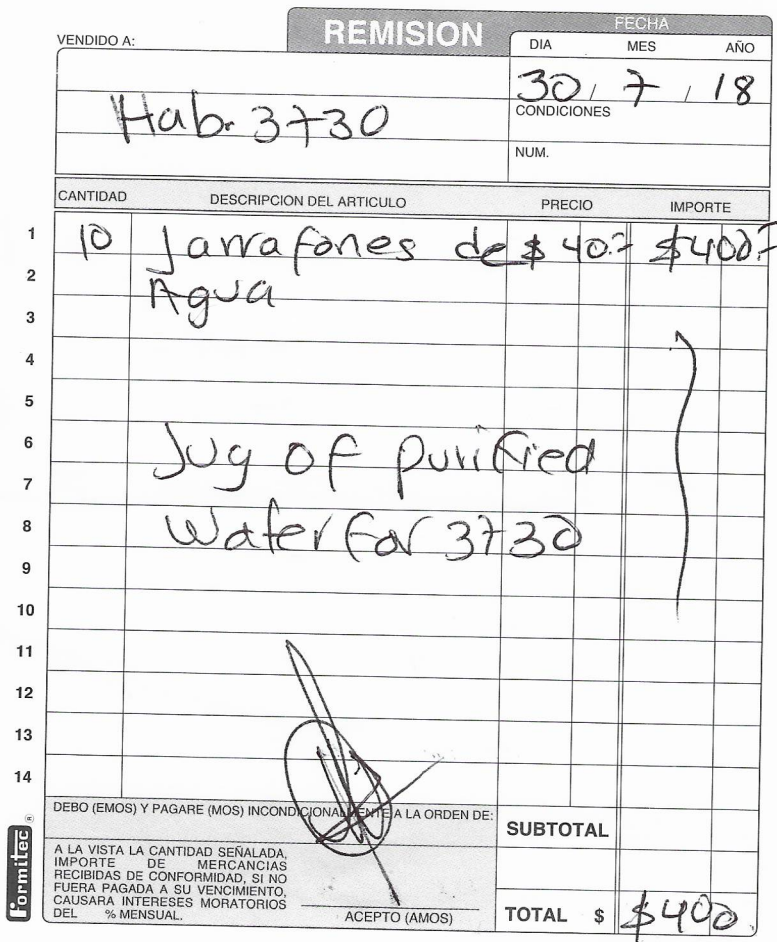 REMISION
FECHA
VENDIDO A:
DIA MES AÑO
30 / 7 / 18
Hab. 3730
CONDICIONES
NUM.
CANTIDAD DESCRIPCION DEL ARTICULO PRECIO IMPORTE
1 10 Jarrafones de $ 40.- $400.-
2 Agua
3
4
5
6 Jug of purified
7
8 Water for 3730
9
10
11
12
13
14
DEBO (EMOS) Y PAGARE (MOS) INCONDICIONALMENTE A LA ORDEN DE:
SUBTOTAL
A LA VISTA LA CANTIDAD SEÑALADA,
IMPORTE DE MERCANCIAS
RECIBIDAS DE CONFORMIDAD, SI NO
FUERA PAGADA A SU VENCIMIENTO,
CAUSARA INTERESES MORATORIOS
DEL % MENSUAL.
ACEPTO (AMOS)
TOTAL $ $400
Formitec ®